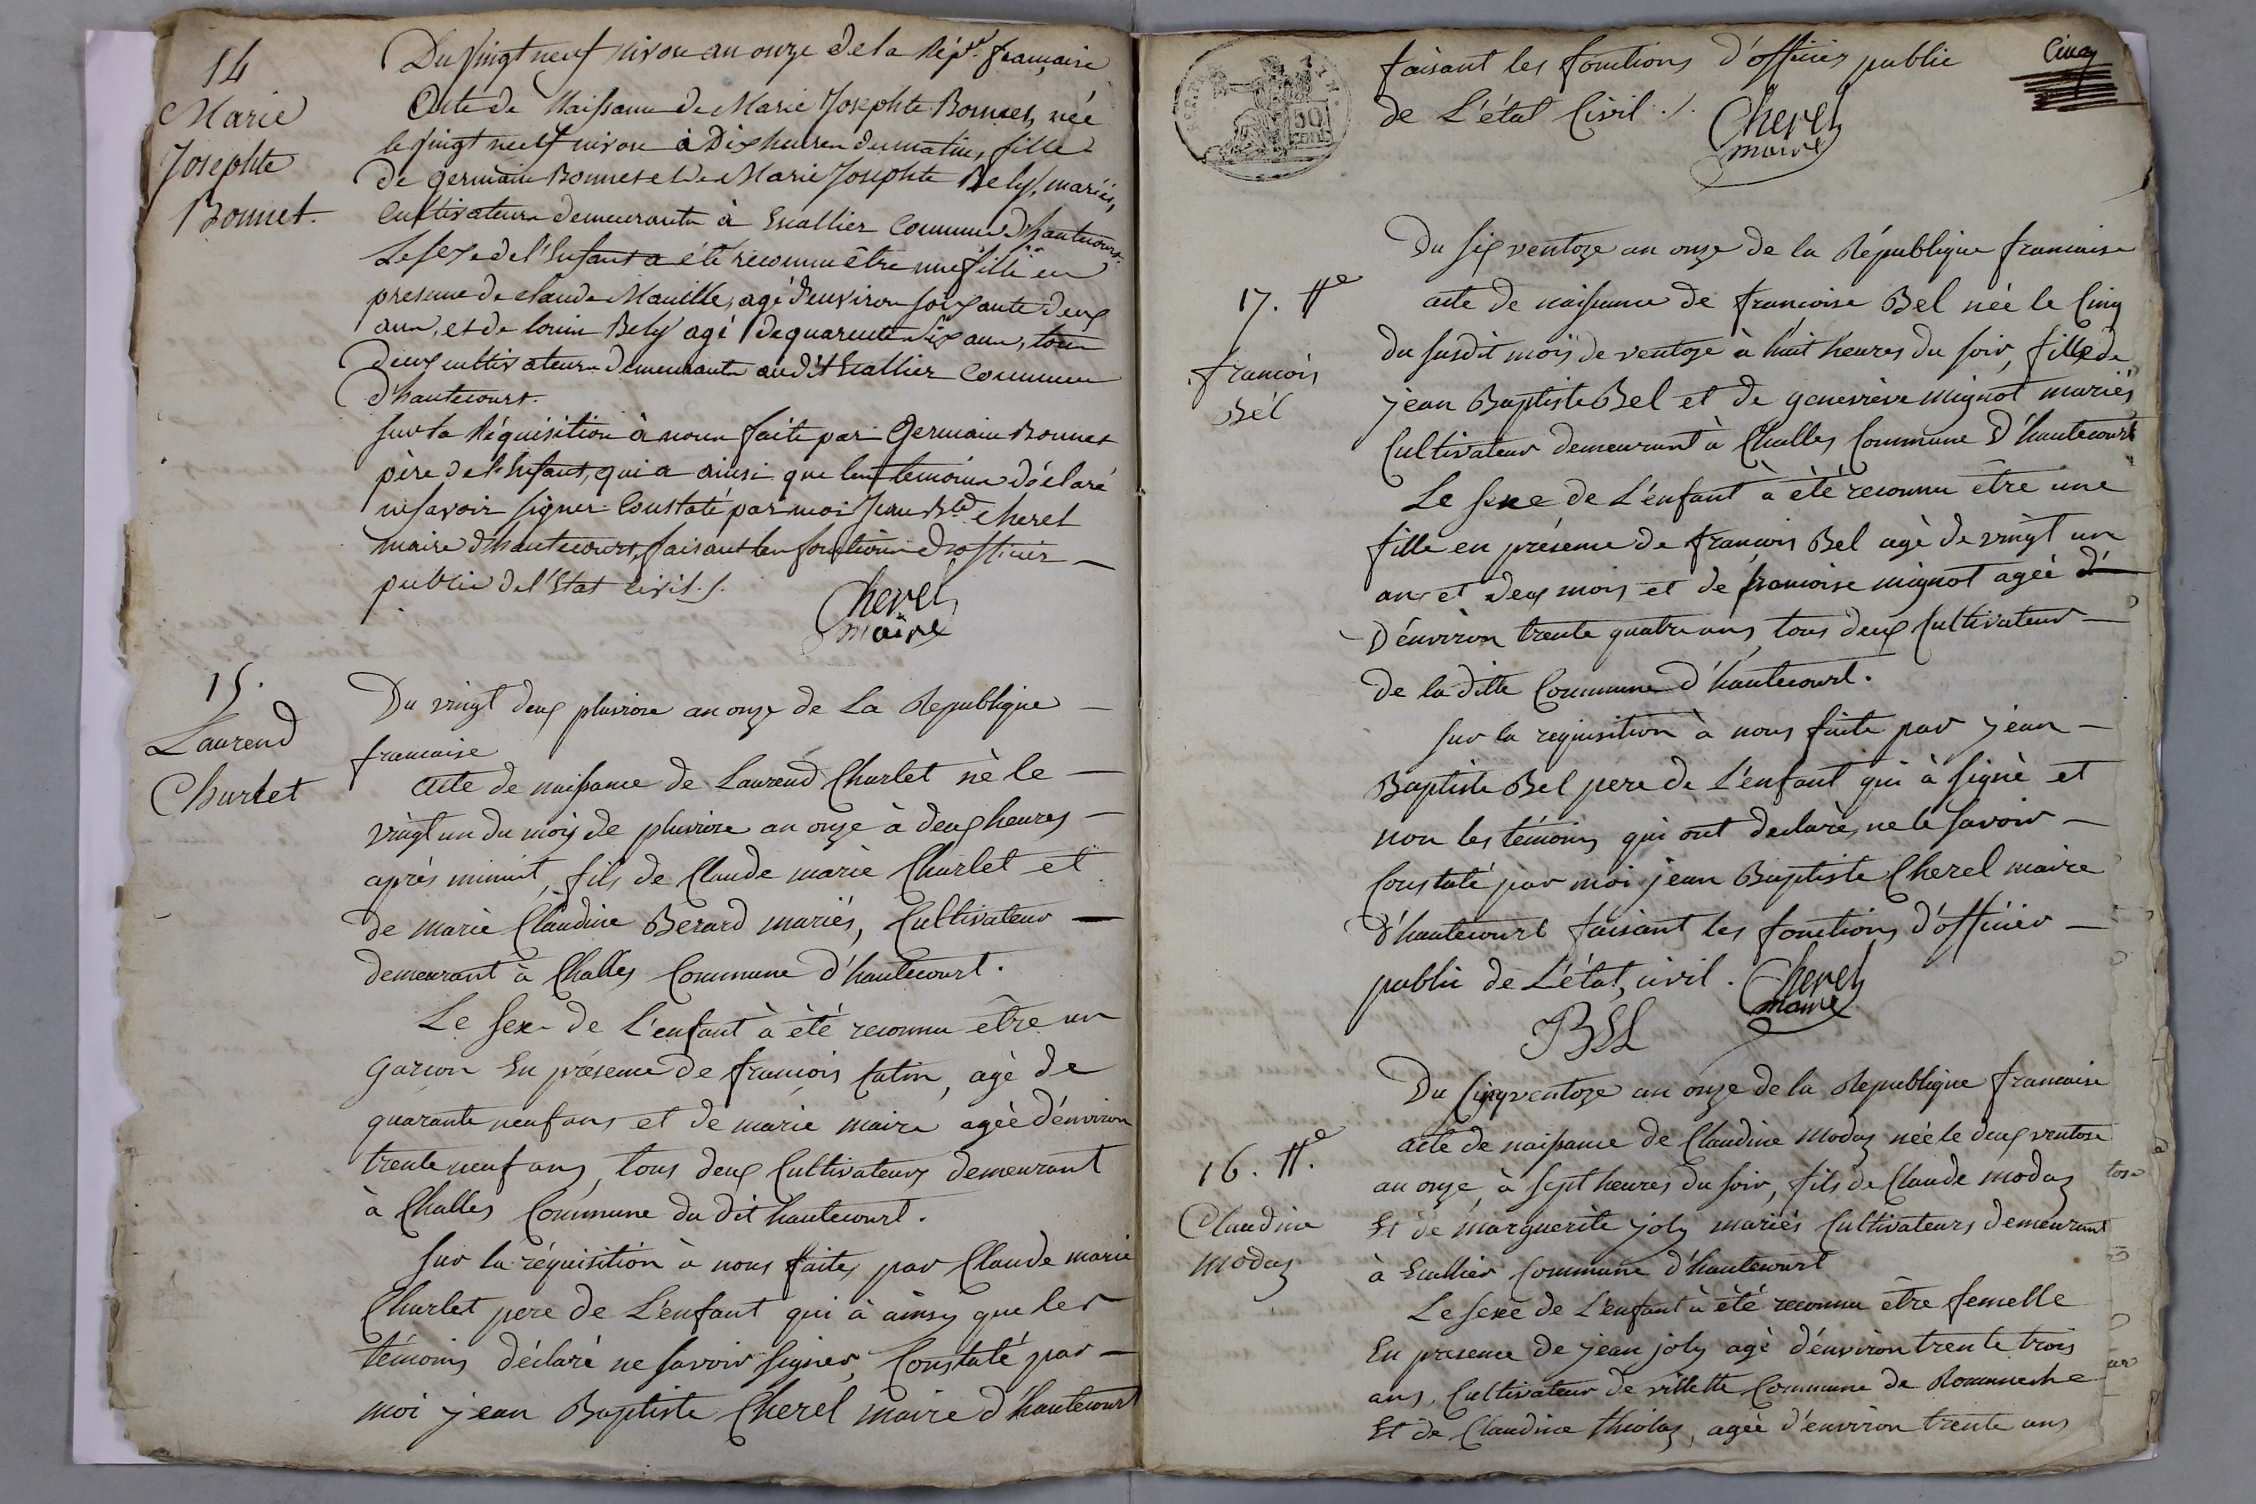 14
Marie
Josephte
Bonnet.
Du vingt neuf nivose an onze de la Rép.e française
Acte de Naissance de Marie Josephte Bonnet, née
le vingt neuf nivose à Dix heures du matin, fille
de germain Bonnet et De Marie Josephte Bely, mariés,
Cultivateurs demeurants à Euallier Commune d'hautecourt.
Le sexe de l'Enfant a été reconnu être une fille en
presence de claude Manille, agé d'environ soixante deux
ans, et de louis Bely agé de quarente six ans, tous
deux cultivateurs demeurants au dit Euallier Commune
d'hautecourt.
sur la Réquisition à nous faite par Germain Bonnet
père de l'Enfant, qui a ainsi que les temoins déclaré
ne savoir signer Constaté par moi Jean B.te cherel
maire d'hautecourt, faisant les fonctions d'officier —
public de l'Etat civil./.
Cherel
maire
15.
Laurend
Charlet
Du vingt deux pluviose an onze de La Republique —
francaise
acte de naissance de Laurend Charlet nè le —
vingt un du mois de pluviose an onze à deux heures —
après minuit, fils de Claude marie Charlet et
de marie Claudine Berard mariés, Cultivateur —
demeurant à Challes Commune d'hautecourt.
Le sexe de L'enfant à èté reconnu être un
garcon En présence de francois Catin, agè de
quarante neuf ans et de marie maire agèe d'environ
trente neuf ans, tous deux Cultivateurs demeurant
à Challes Commune du dit hautecourt.
sur la réquisition à nous faites par Claude marie
Charlet pere de L'enfant qui à ainsy que les
témoins déclaré ne savoir signer, Constaté par —
moi jean Baptiste Cherel maire d'hautecourt
Cinq
faisant les fonctions d'officier public
de L'état Civil ./.
Cherel
maire
Du six ventoze an onze de la République francaise
17. #e
francois
Bel
acte de naissance de francoise Bel née le Cinq
du susdit mois de ventoze à huit heures du soir, fille de
jean Baptiste Bel et de genevieve mignot mariés
Cultivateur demeurant à Challes Commune d'hautecourt
Le sexe de L'enfant à èté reconnu être une
fille en présence de francois Bel agè de vingt un
ans et deux mois et de francoise mignot agèe d'
D'environ trente quatre ans, tous deux Cultivateur —
de la ditte Commune d'hautecourt.
sur la requisition à nous faite par jean —
Baptiste Bel pere de L'enfant qui à signè et
non les témoins qui ont declarè, ne le savoir —
Constaté par moi jean Baptiste Cherel maire
d'hautecourt faisant les fonctions d'officier —
public de L'état, civil.
Cherel
maire
BEL
Du Cinq ventoze an onze de la Republique francaise
16. #e.
Claudine
modas
acte de naissance de Claudine modas née le deux ventose
an onze, à sept heures du soir, fils de Claude modas
Et de marguerite joly mariés Cultivateurs demeurant
à Euallier Commune d'hautecourt
Le sexe de L'enfant à èté reconnu être femelle
En presence de jean joly agè d'environ trente trois
ans, Cultivateur de villette Commune de Romaneche
Et de Claudine thiolas, agèe d'environ trente ans